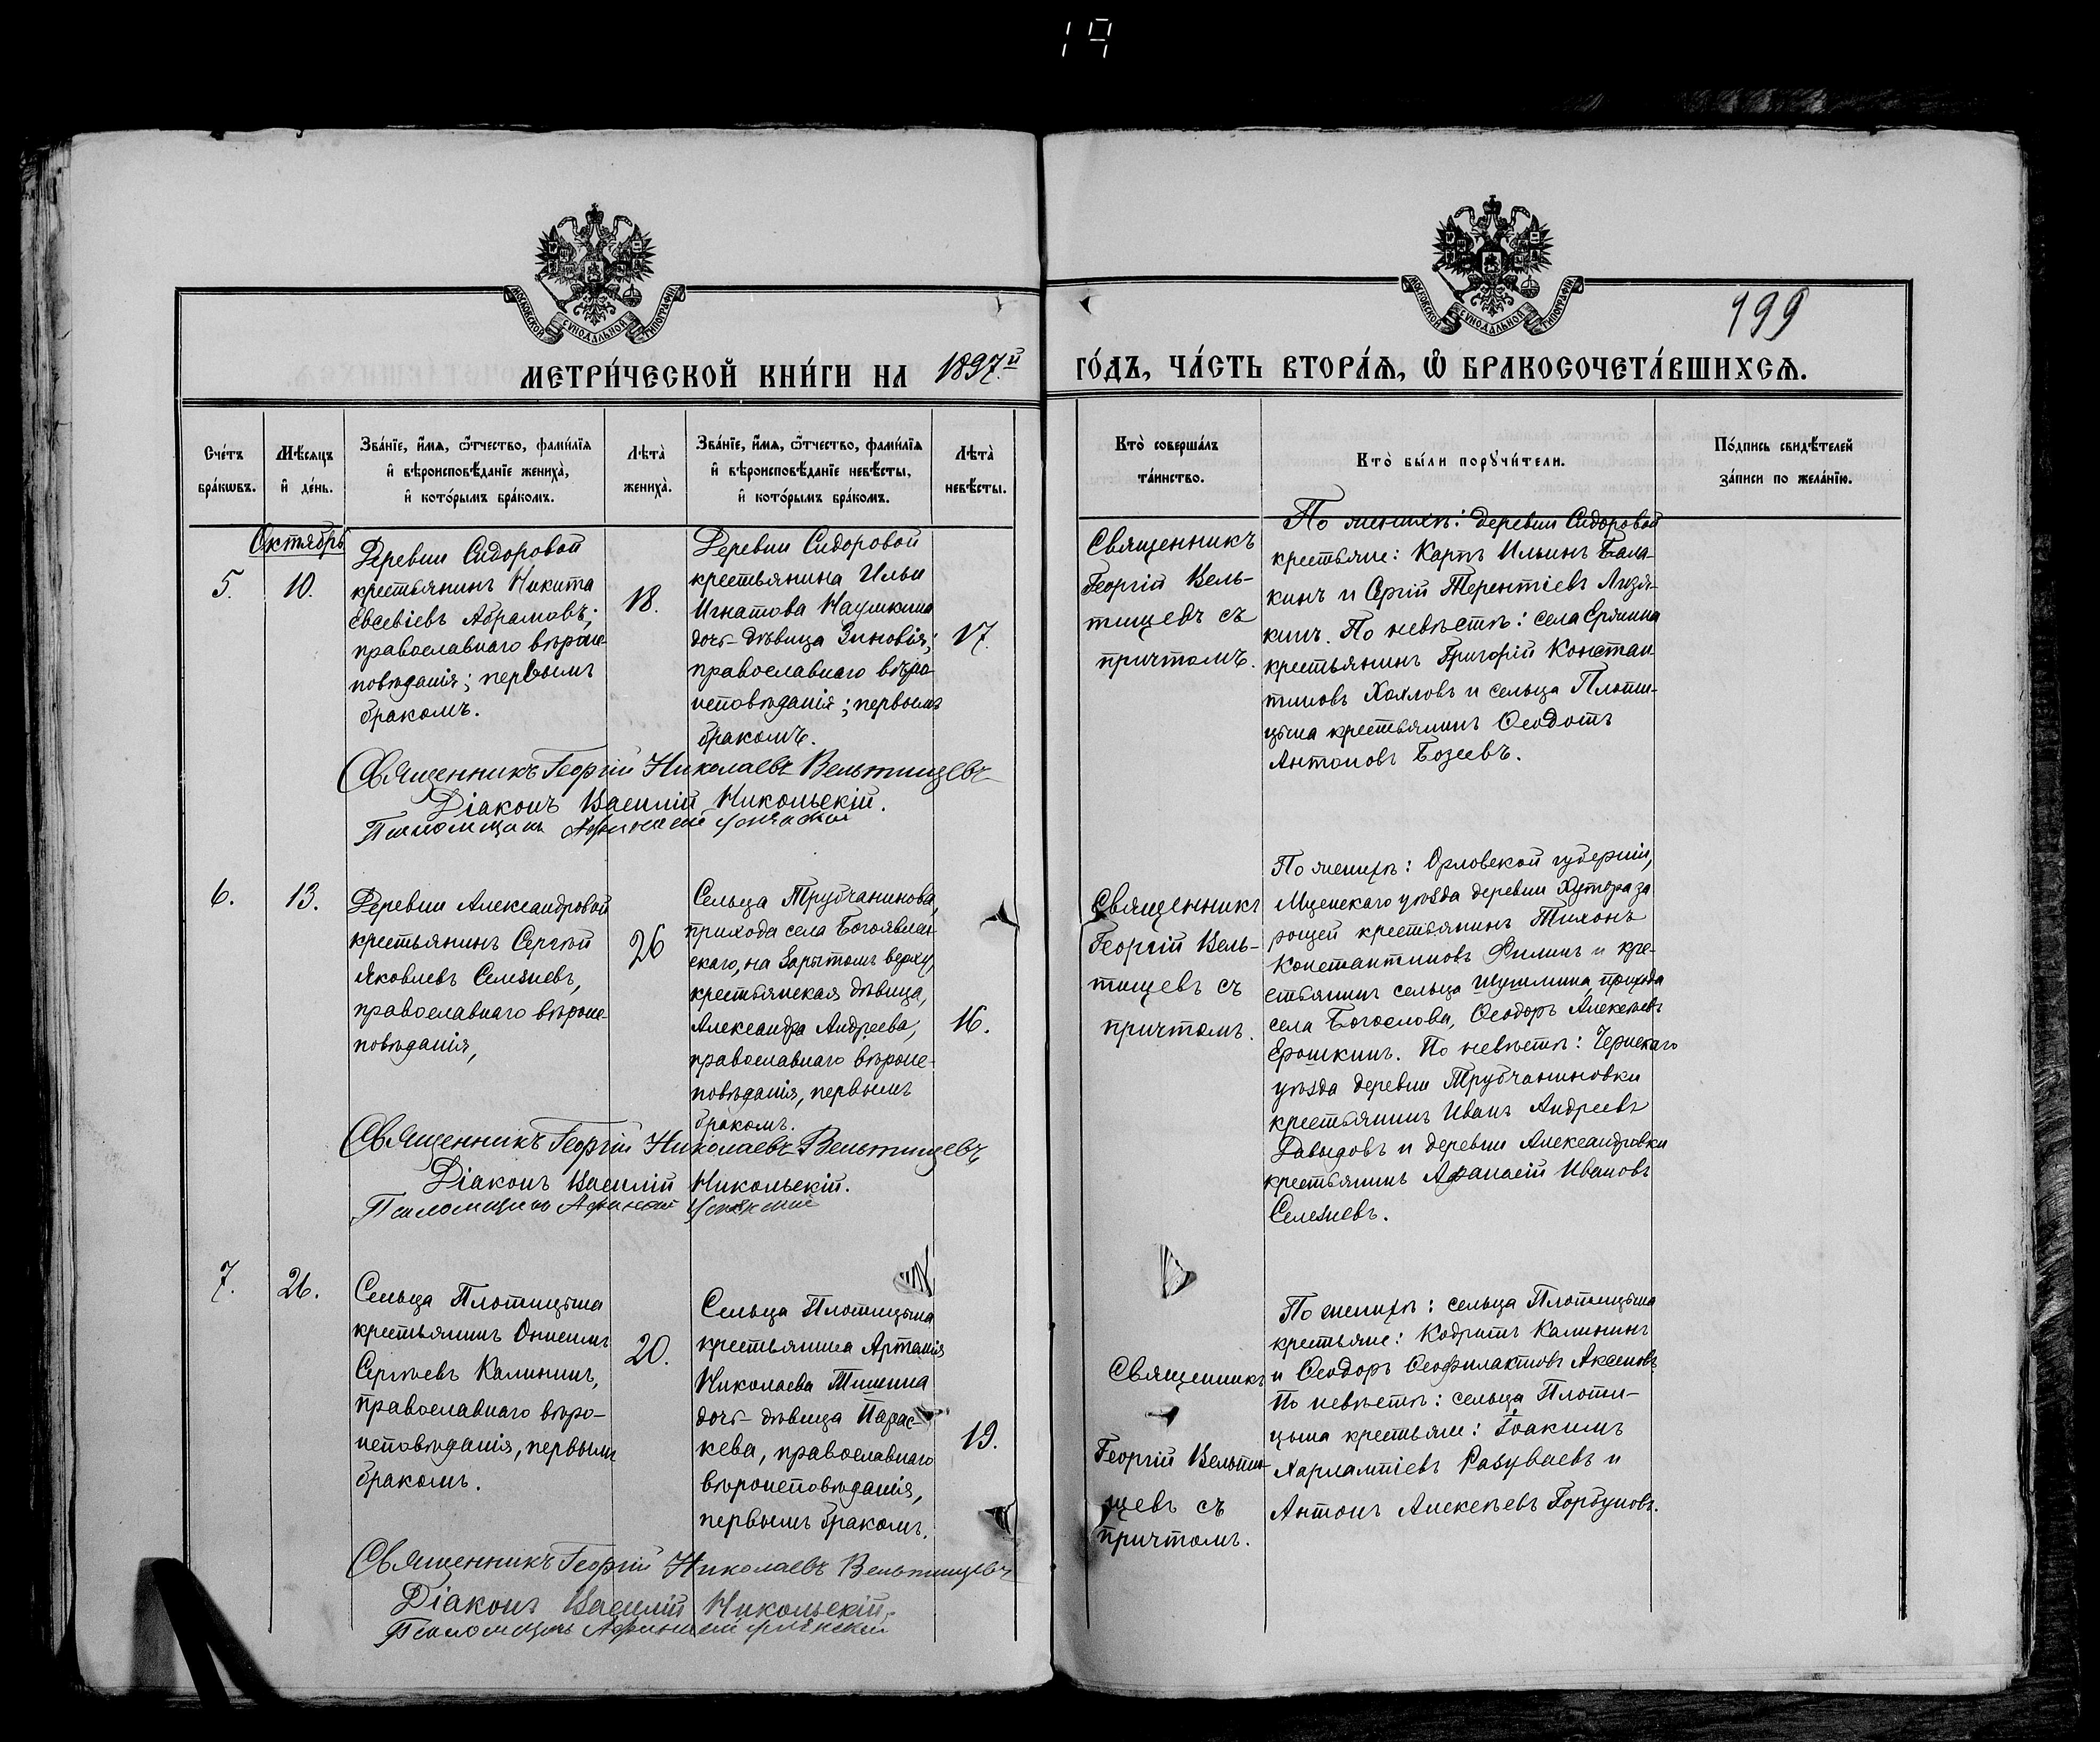 199
МОСКОВСКОЙ СѴНОДАЛЬНОЙ ТИПОГРАФІИ
МОСКОВСКОЙ СѴНОДАЛЬНОЙ ТИПОГРАФІИ
МЕТРИ́ЧЕСКОЙ КНИ́ГИ НА 1897.й
ГО́ДЪ, ЧА́СТЬ ВТОРА́Ѧ, Ѽ БРАКОСОЧЕТА́ВШИХСѦ.
Сче́тъ
бра́кѡвъ.
Мѣ́сѧцъ
и҆ де́нь.
Зва́нїе, и҆́мѧ, ѻ҆́тчество, фами́лїѧ
и҆ вѣроисповѣ́данїе жениха̀,
и҆ кото́рымъ бра́комъ.
Лѣ́та̀
жениха̀.
Зва́нїе, и҆́мѧ, ѻ҆́тчество, фами́лїѧ
и҆ вѣроисповѣ́данїе невѣ́сты,
и҆ кото́рымъ бра́комъ.
Лѣ́та̀
невѣ́сты.
Кто̀ соверша́лъ
та́инство.
Кто̀ бы́ли порꙋчи́тели.
По́дпись свидѣ́телей
за́писи по жела́нїю.
Октябрь
5.
10.
Деревни Сидоровой
крестьянинъ Никита
Евсевіевъ Абрамовъ;
православнаго вѣроис-
повѣданія; первымъ
бракомъ.
18.
Деревни Сидоровой
крестьянина Ильи
Игнатова Наумкина
дочь-дѣвица Зиновія;
православнаго вѣро-
исповѣданія; первымъ
бракомъ.
17.
Священникъ
Георгій Вель-
тищевъ съ
причтомъ.
По женихѣ: деревни Сидоровой
крестьяне: Карпъ Ильинъ Бала-
кинъ и Сергій Терентіевъ Лизя-
кинъ. По невѣстѣ: села
крестьянинъ Григорій Констан-
тиновъ Хохловъ и сельца Плоти-
цына крестьянинъ Ѳеодотъ
Антоновъ Бозеевъ.
Священникъ Георгій Николаевъ Вельтищевъ
Діаконъ Василій Никольскій.
Псаломщикъ
6.
13.
Деревни Александровой
крестьянинъ Сергѣй
Яковлевъ Селезневъ,
православнаго вѣроис-
повѣданія,
26
Сельца Трубчанинова,
прихода села Богоявлен-
скаго, на Зарытомъ верху,
крестьянская дѣвица,
Александра Андреева,
православнаго вѣроис-
повѣданія, первымъ
бракомъ.
16.
Священникъ
Георгій Вель-
тищевъ съ
причтомъ.
По женихѣ: Орловской губерніи,
Мценскаго уѣзда деревни Хутора за
рощей крестьянинъ Тихонъ
Константиновъ Филинъ и кре-
стьянинъ сельца прихода
села Богослова, Ѳеодоръ Алексѣевъ
Ерошкинъ. По невѣстѣ: Чернскаго
уѣзда деревни Трубчаниновки
крестьянинъ Иванъ Андреевъ
Давыдовъ и деревни Александровки
крестьянинъ Афанасій Ивановъ
Селезневъ.
Священникъ Георгій Николаевъ Вельтищевъ
Діаконъ Василій Никольскій.
Псаломщикъ
7.
26.
Сельца Плотицына
крестьянинъ Онисимъ
Сергѣевъ Калининъ,
православнаго вѣро-
исповѣданія, первымъ
бракомъ.
20.
Сельца Плотицына
крестьянина Артамія
Николаева Тишина
дочь-дѣвица Парас-
кева, православнаго
вѣроисповѣданія,
первымъ бракомъ.
19.
Священникъ
Георгій Вельти-
щевъ съ
причтомъ.
По женихѣ: сельца Плотицына
крестьяне: Кодратъ Калининъ
и Ѳеодоръ Ѳеофилактовъ Аксеновъ.
По невѣстѣ: сельца Плоти-
цына крестьяне: Іоакимъ
Харлампіевъ Разуваевъ и
Антонъ Алексѣевъ Горбуновъ.
Священникъ Георгій Николаевъ Вельтищевъ
Діаконъ Василій Никольскій.
Псаломщикъ